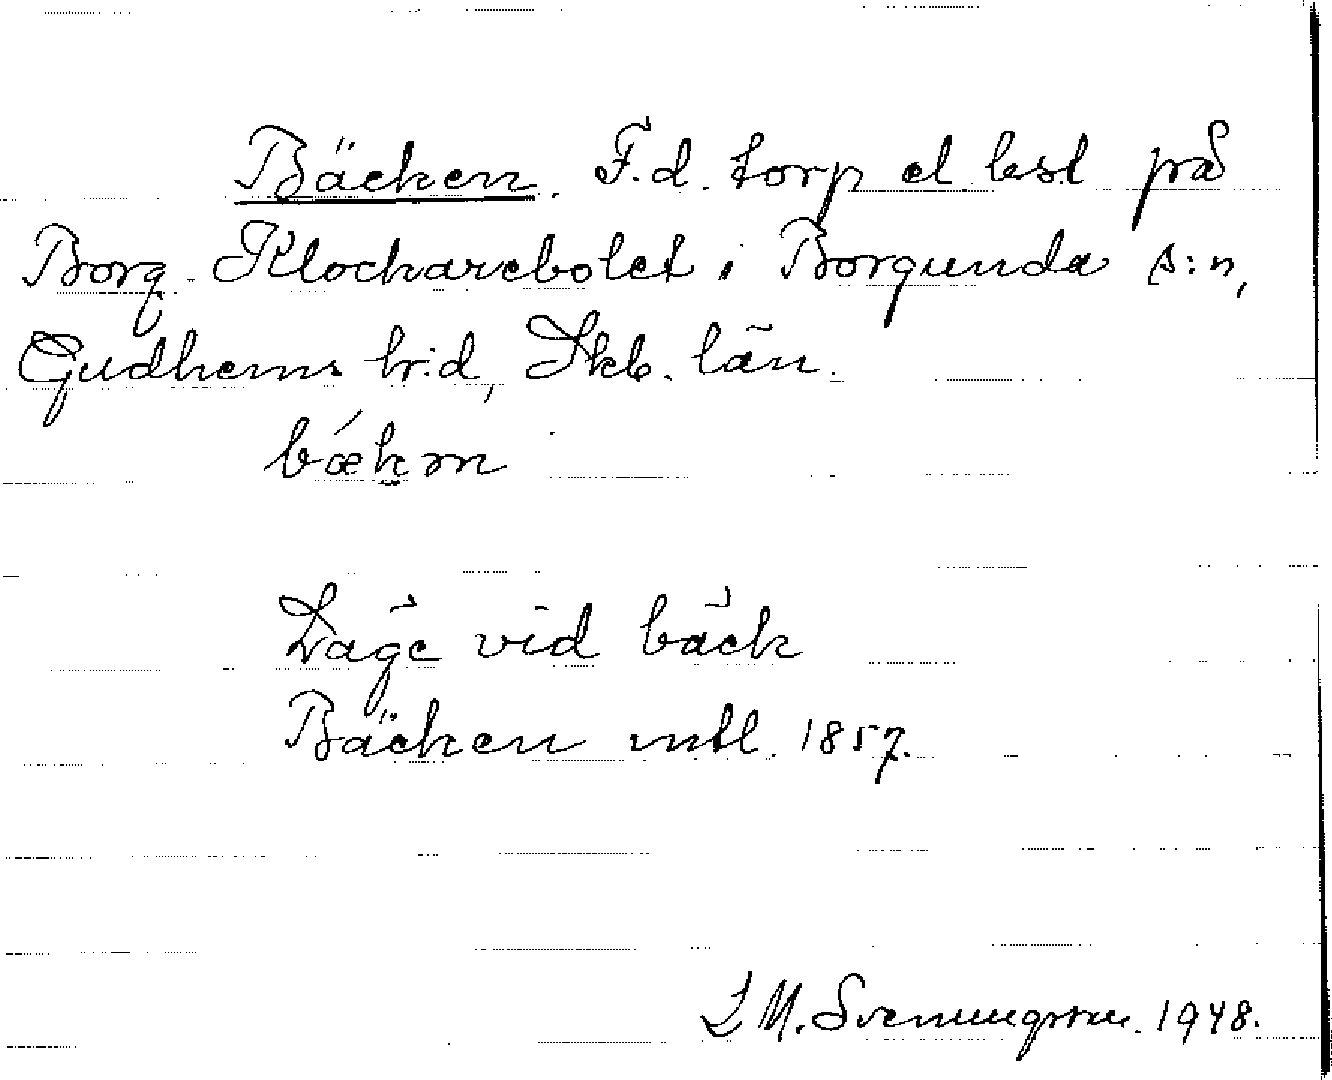 Bäcken. F.d. torp el. lht på
Borg. Klockarebolet i Borgunda s:n,
Gudhems h:d, Skb. län.
bækɐn
Läge vid bäck
Bäcken mtl. 1857.
L M. Svenungsson. 1948.